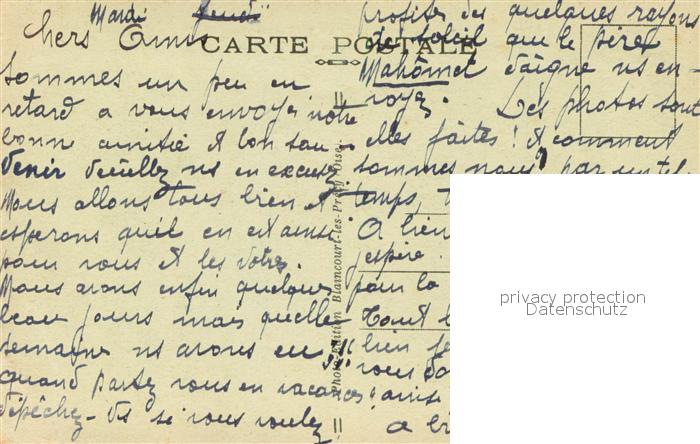 Mardi
Chers Amis
CARTE POSTALE
Sommes un peu en
retard a vous envoyer notre
bonne amitié et bon sou-
venir Veuillez ns en excusez
Nous allons tous bien et
esperons qu'il en est ainsi
pour vous et les votres.
Nous avons enfin quelques
beau jours mais quelle
semaine ns avons eu
quand partez vous en vacances
dépêchez-vs si vous voulez
profiter des quelques rayons
de soleil que le père
Mahomet daigne ns en-
royez. Les photos sont
elles faites ! et comment
sommes nous par un tel
temps,
A bien
j'espère.
pour la
Tout
bien
vous
amise
a bi
Photo-Edition Blaincourt-les-Précy Oise
privacy protection
Datenschutz